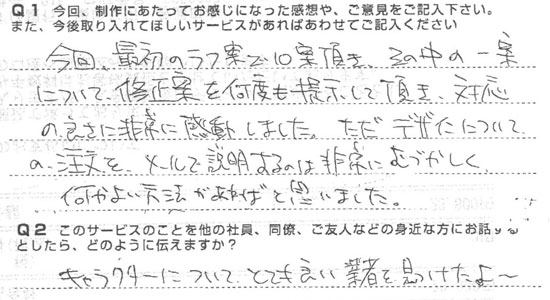 Q1 今回、制作にあたってお感じになった感想や、ご意見をご記入下さい。
また、今後取り入れてほしいサービスがあればあわせてご記入ください
今回、最初のラフ案で10案頂き、その中の一案
について、修正案を何度も提示して頂き、対応
の良さに非常に感動しました。ただ デザインについて
の注文を、メールで説明するのは非常にむづかしく、
何かよい方法があればと思いました。
Q2 このサービスのことを他の社員、同僚、ご友人などの身近な方にお話する
としたら、どのように伝えますか？
キャラクターについて、とても良い業者を見つけたよ〜